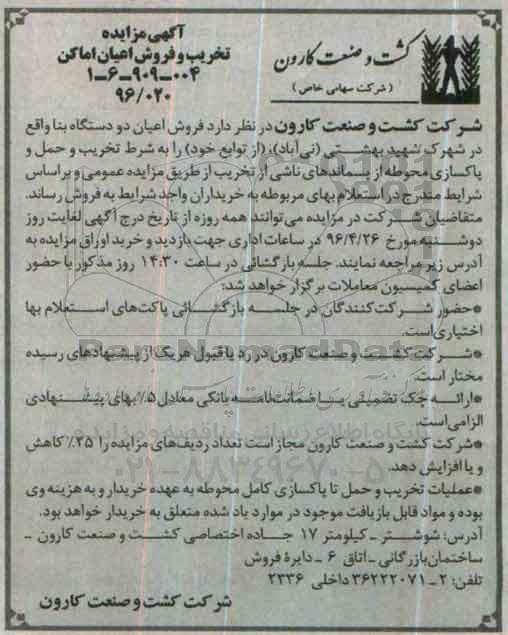 آگهی مزایده
تخریب و فروش اعیان اماکن
۱-۶-۹۰۹-۰۰۴
۹۶/۰۲۰
کشت و صنعت کارون
( شرکت سهامی خاص )
شرکت کشت و صنعت کارون در نظر دارد فروش اعیان دو دستگاه بنا واقع
در شهرک شهید بهشتی (نی‌آباد)، (از توابع خود) را به شرط تخریب و حمل و
پاکسازی محوطه از پسماندهای ناشی از تخریب از طریق مزایده عمومی و براساس
شرایط مندرج در استعلام بهای مربوطه به خریداران واجد شرایط به فروش رساند.
متقاضیان شرکت در مزایده می‌توانند همه روزه از تاریخ درج آگهی لغایت روز
دوشنبه مورخ ۹۶/۴/۲۶ در ساعات اداری جهت بازدید و خرید اوراق مزایده به
آدرس زیر مراجعه نمایند. جلسه بازگشائی در ساعت ۱۴:۳۰ روز مذکور با حضور
اعضای کمیسیون معاملات برگزار خواهد شد:
*حضور شرکت‌کنندگان در جلسه بازگشائی پاکت‌های استعلام بها
اختیاری است.
*شرکت کشت و صنعت کارون در رد یا قبول هر یک از پیشنهادهای رسیده
مختار است.
*ارائه چک تضمینی یا ضمانتنامه بانکی معادل ۵٪ بهای پیشنهادی
الزامی است.
*شرکت کشت و صنعت کارون مجاز است تعداد ردیف‌های مزایده را ۲۵٪ کاهش
و یا افزایش دهد.
*عملیات تخریب و حمل تا پاکسازی کامل محوطه به عهده خریدار و به هزینه وی
بوده و مواد قابل بازیافت موجود در موارد یاد شده متعلق به خریدار خواهد بود.
آدرس: شوشتر ـ کیلومتر ۱۷ جاده اختصاصی کشت و صنعت کارون ـ
ساختمان بازرگانی ـ اتاق ۶ ـ دایرۀ فروش
تلفن: ۲ـ۳۶۲۲۲۰۷۱ داخلی ۲۳۳۶
شرکت کشت و صنعت کارون
ParsNamadData
۰۲۱-۸۸۳۴۹۶۷۰-۵